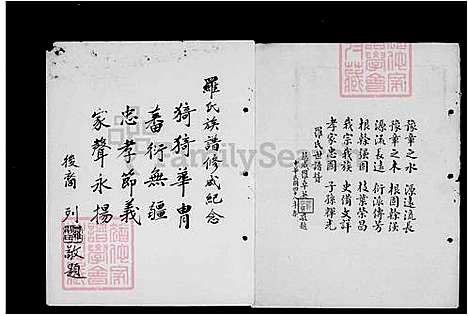 豫章之水　源遠流長
豫章之木　根固榦强
源流長遠　衍派傳芳
根榦强固　枝葉榮昌
我宗我族　史備文詳
孝家忠國　子孫輝光
羅氏世譜錄
羅氏族譜修成紀念
猗猗華胄
蕃衍無疆
忠孝節義
家聲永揚
後裔　列　敬題
FamilySearch